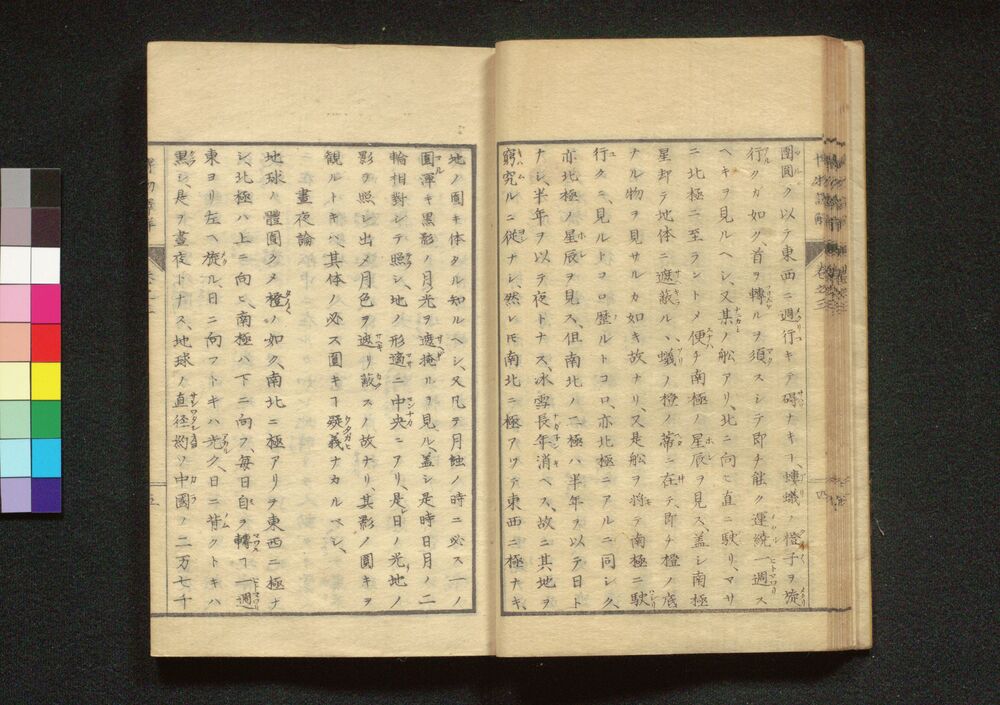 團圓ク以テ東西ニ週行キテ碍ナキヿ、螻蟻ノ橙子ヲ旋
行クガ如ク、首ヲ轉ルヲ須スシテ即チ能ク運繞一週ス
ヘキヲ見ルヘシ、又某ノ舩アリ、北ニ向ヒ直ニ駛リ、マサ
ニ北極ニ至ラントメ便チ南極ノ星辰ヲ見ス、盖シ南極
星却テ地体ニ遮蔽ル、蟻ノ橙ノ蒂ニ在テ、即チ橙ノ底
ナル物ヲ見サルカ如キ故ナリ、又是舩ヲ将テ南極ニ駛
行クニ、見ルトコロ歴ルトコロ、亦北極ニアルニ同シク、
亦北極ノ星辰ヲ見ス、但南北ノ二極ハ半年ヲ以テ日ト
ナシ、半年ヲ以テ夜トナス、氷雪長年消ヘス、故ニ其地ヲ
窮究ルニ従ナシ、然レㇳモ南北ニ極アツテ東西ニ極ナキ、
地ノ圓キ体タル知ルヘシ、又凡テ月蝕ノ時ニ必ス一ノ
圓渾キ黒影ノ月光ヲ遮掩ルヿ見ル、盖シ是時日月ノ二
輪相對シテ照シ、地ノ形適ニ中央ニアリ、是日ノ光地ノ
影ヲ照シ出メ月色ヲ遮リ蔽スノ故ナリ、其影ノ圓キヲ
観ルトキハ、其体ノ必ス圓キヿ疑義ナカルヘシ、
晝夜論
地球ノ體圓クメ橙ノ如ク、南北ニ極アリヲ東西ニ極ナ
シ、北極ハ上ニ向ヒ、南極ハ下ニ向フ、毎日自ラ轉ヿ一週
東ヨリ左ヘ旋ル、日ニ向フトキハ光ク、日ニ背クトキハ
黒シ、是ヲ晝夜トナス、地球ノ直径約ソ中國ノ二万七千